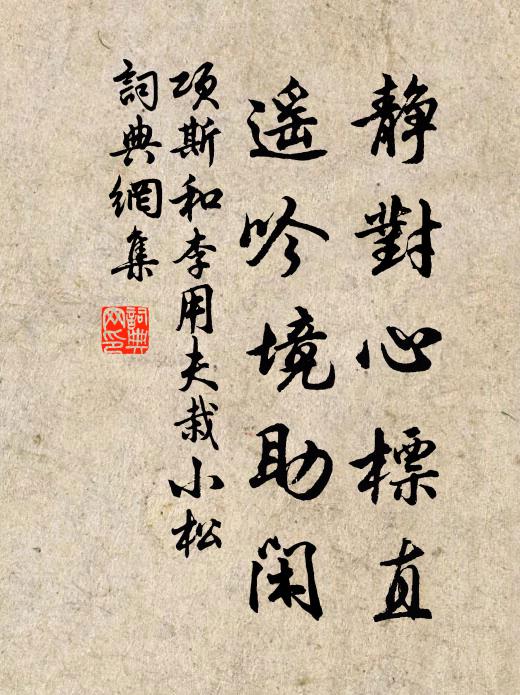 静對心標直
遥吟境助閑
項斯和李用夫栽小松
詞典網集
詞典
网印